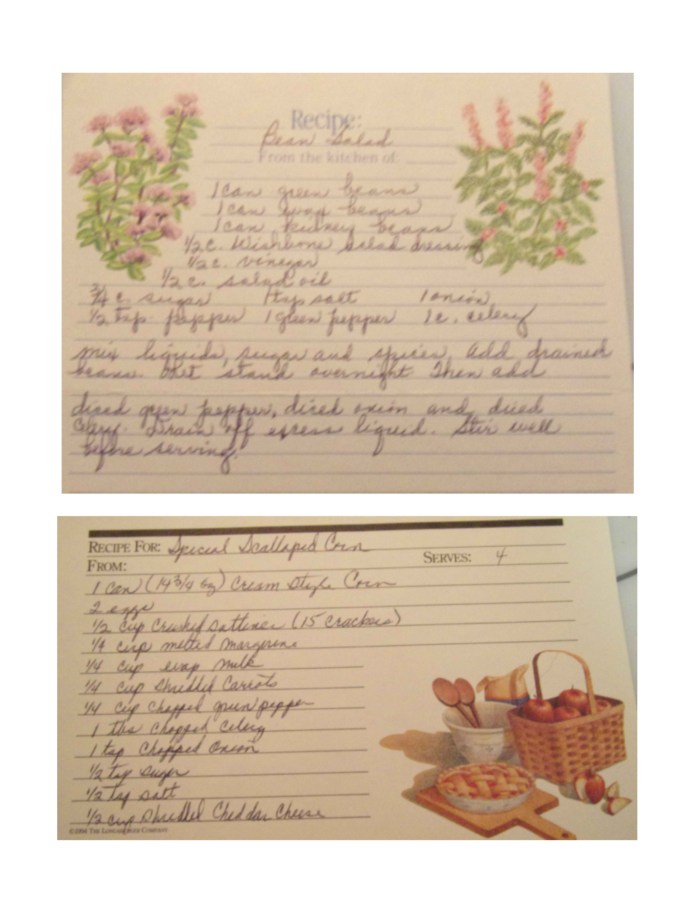 Recipe:
Bean Salad
From the kitchen of:
1 can green beans
1 can beans
1 can kidney beans
1/2 c. Wishbone salad dressing
1/2 c. vinegar
1/2 c. salad oil
3/4 c. sugar 1 tsp salt 1 onion
1/2 tsp pepper 1 green pepper 1 c. celery
mix liquids, sugar and spices, add drained
beans. Let stand overnight Then add
diced green pepper, diced onion and diced
celery. Drain off excess liquid. Stir well
before serving.
RECIPE FOR: Special Scalloped Corn
FROM: SERVES: 4
1 can (14 3/4 oz) Cream Style Corn
2 eggs
1/2 cup Crushed Saltines (15 crackers)
1/4 cup melted margarine
1/4 cup evap milk
1/4 cup Shredded Carrots
1/4 cup Chopped green pepper
1 tbs Chopped Celery
1 tsp Chopped Onion
1/2 tsp Sugar
1/2 tsp salt
1/2 cup Shredded Cheddar Cheese
THE LONGABERGER COMPANY